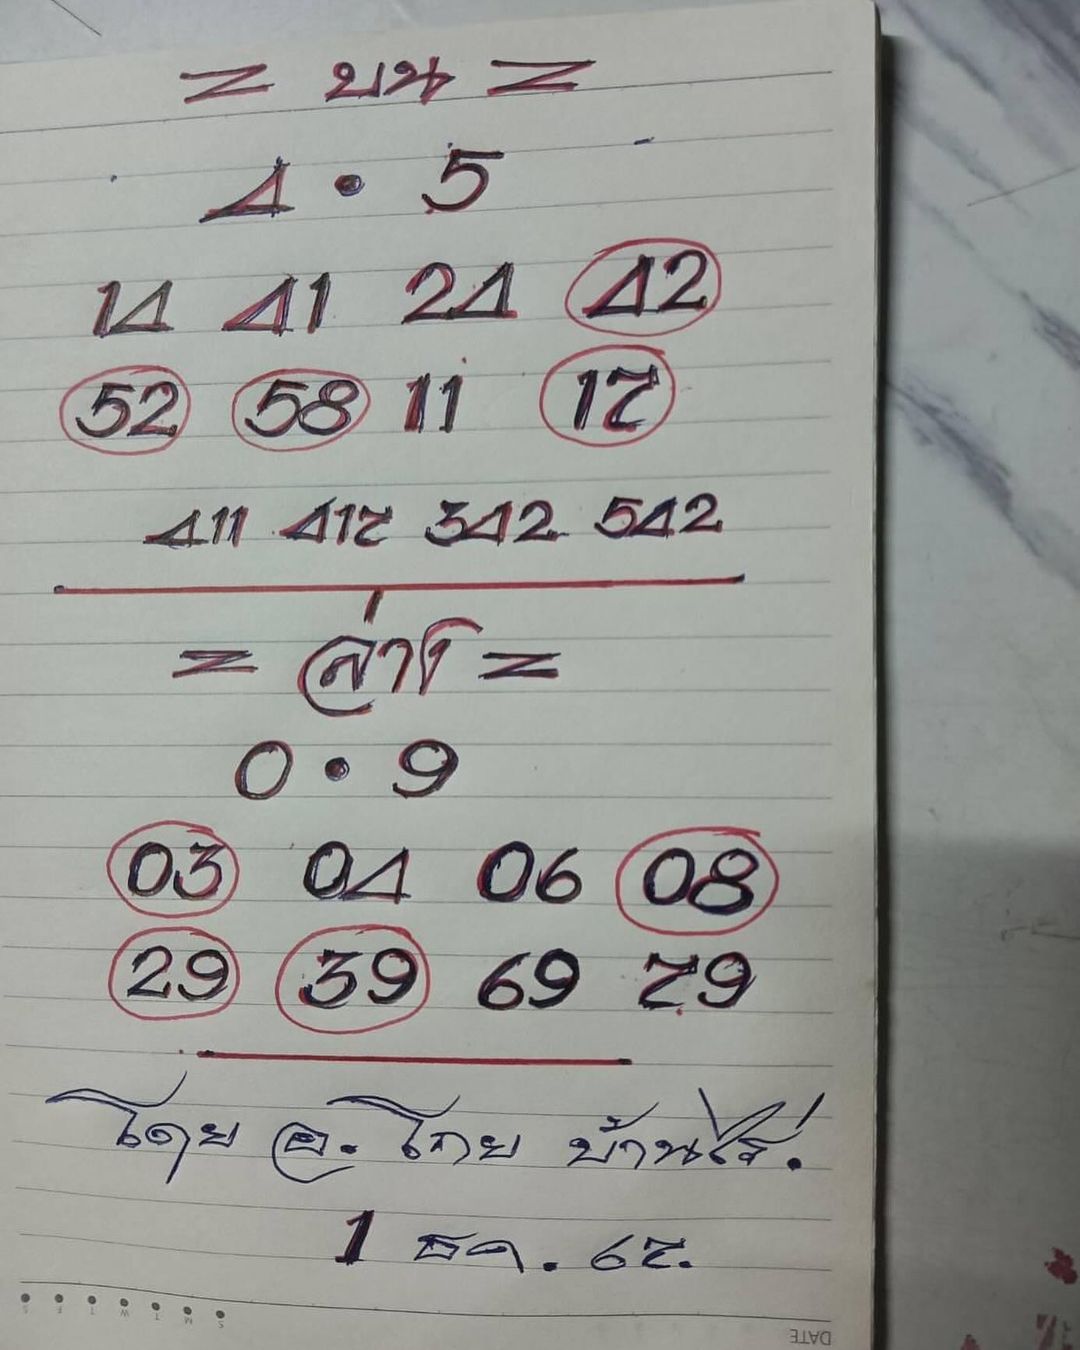 = บน =
4 • 5
14 41 24 42
52 58 11 17
411 417 342 542
= ล่าง =
0 • 9
03 04 06 08
29 39 69 79
โดย อ. โกย บ้านไร่.
1 ธค. 67.
S F T W T M S
DATE